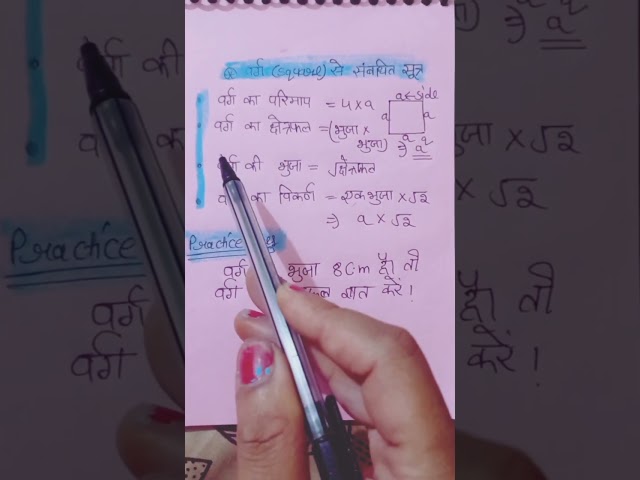 Q वर्ग (square) से संबंधित सूत्र
वर्ग का परिमाप = 4 x a
a ← side
a
a
a
वर्ग का क्षेत्रफल = (भुजा x भुजा) ⇒ a²
वर्ग की भुजा = √क्षेत्रफल
का विकर्ण = एक भुजा x √2
⇒ a x √2
Practice
वर्ग भुजा 8 cm है। तो
वर्ग ज्ञात करें !